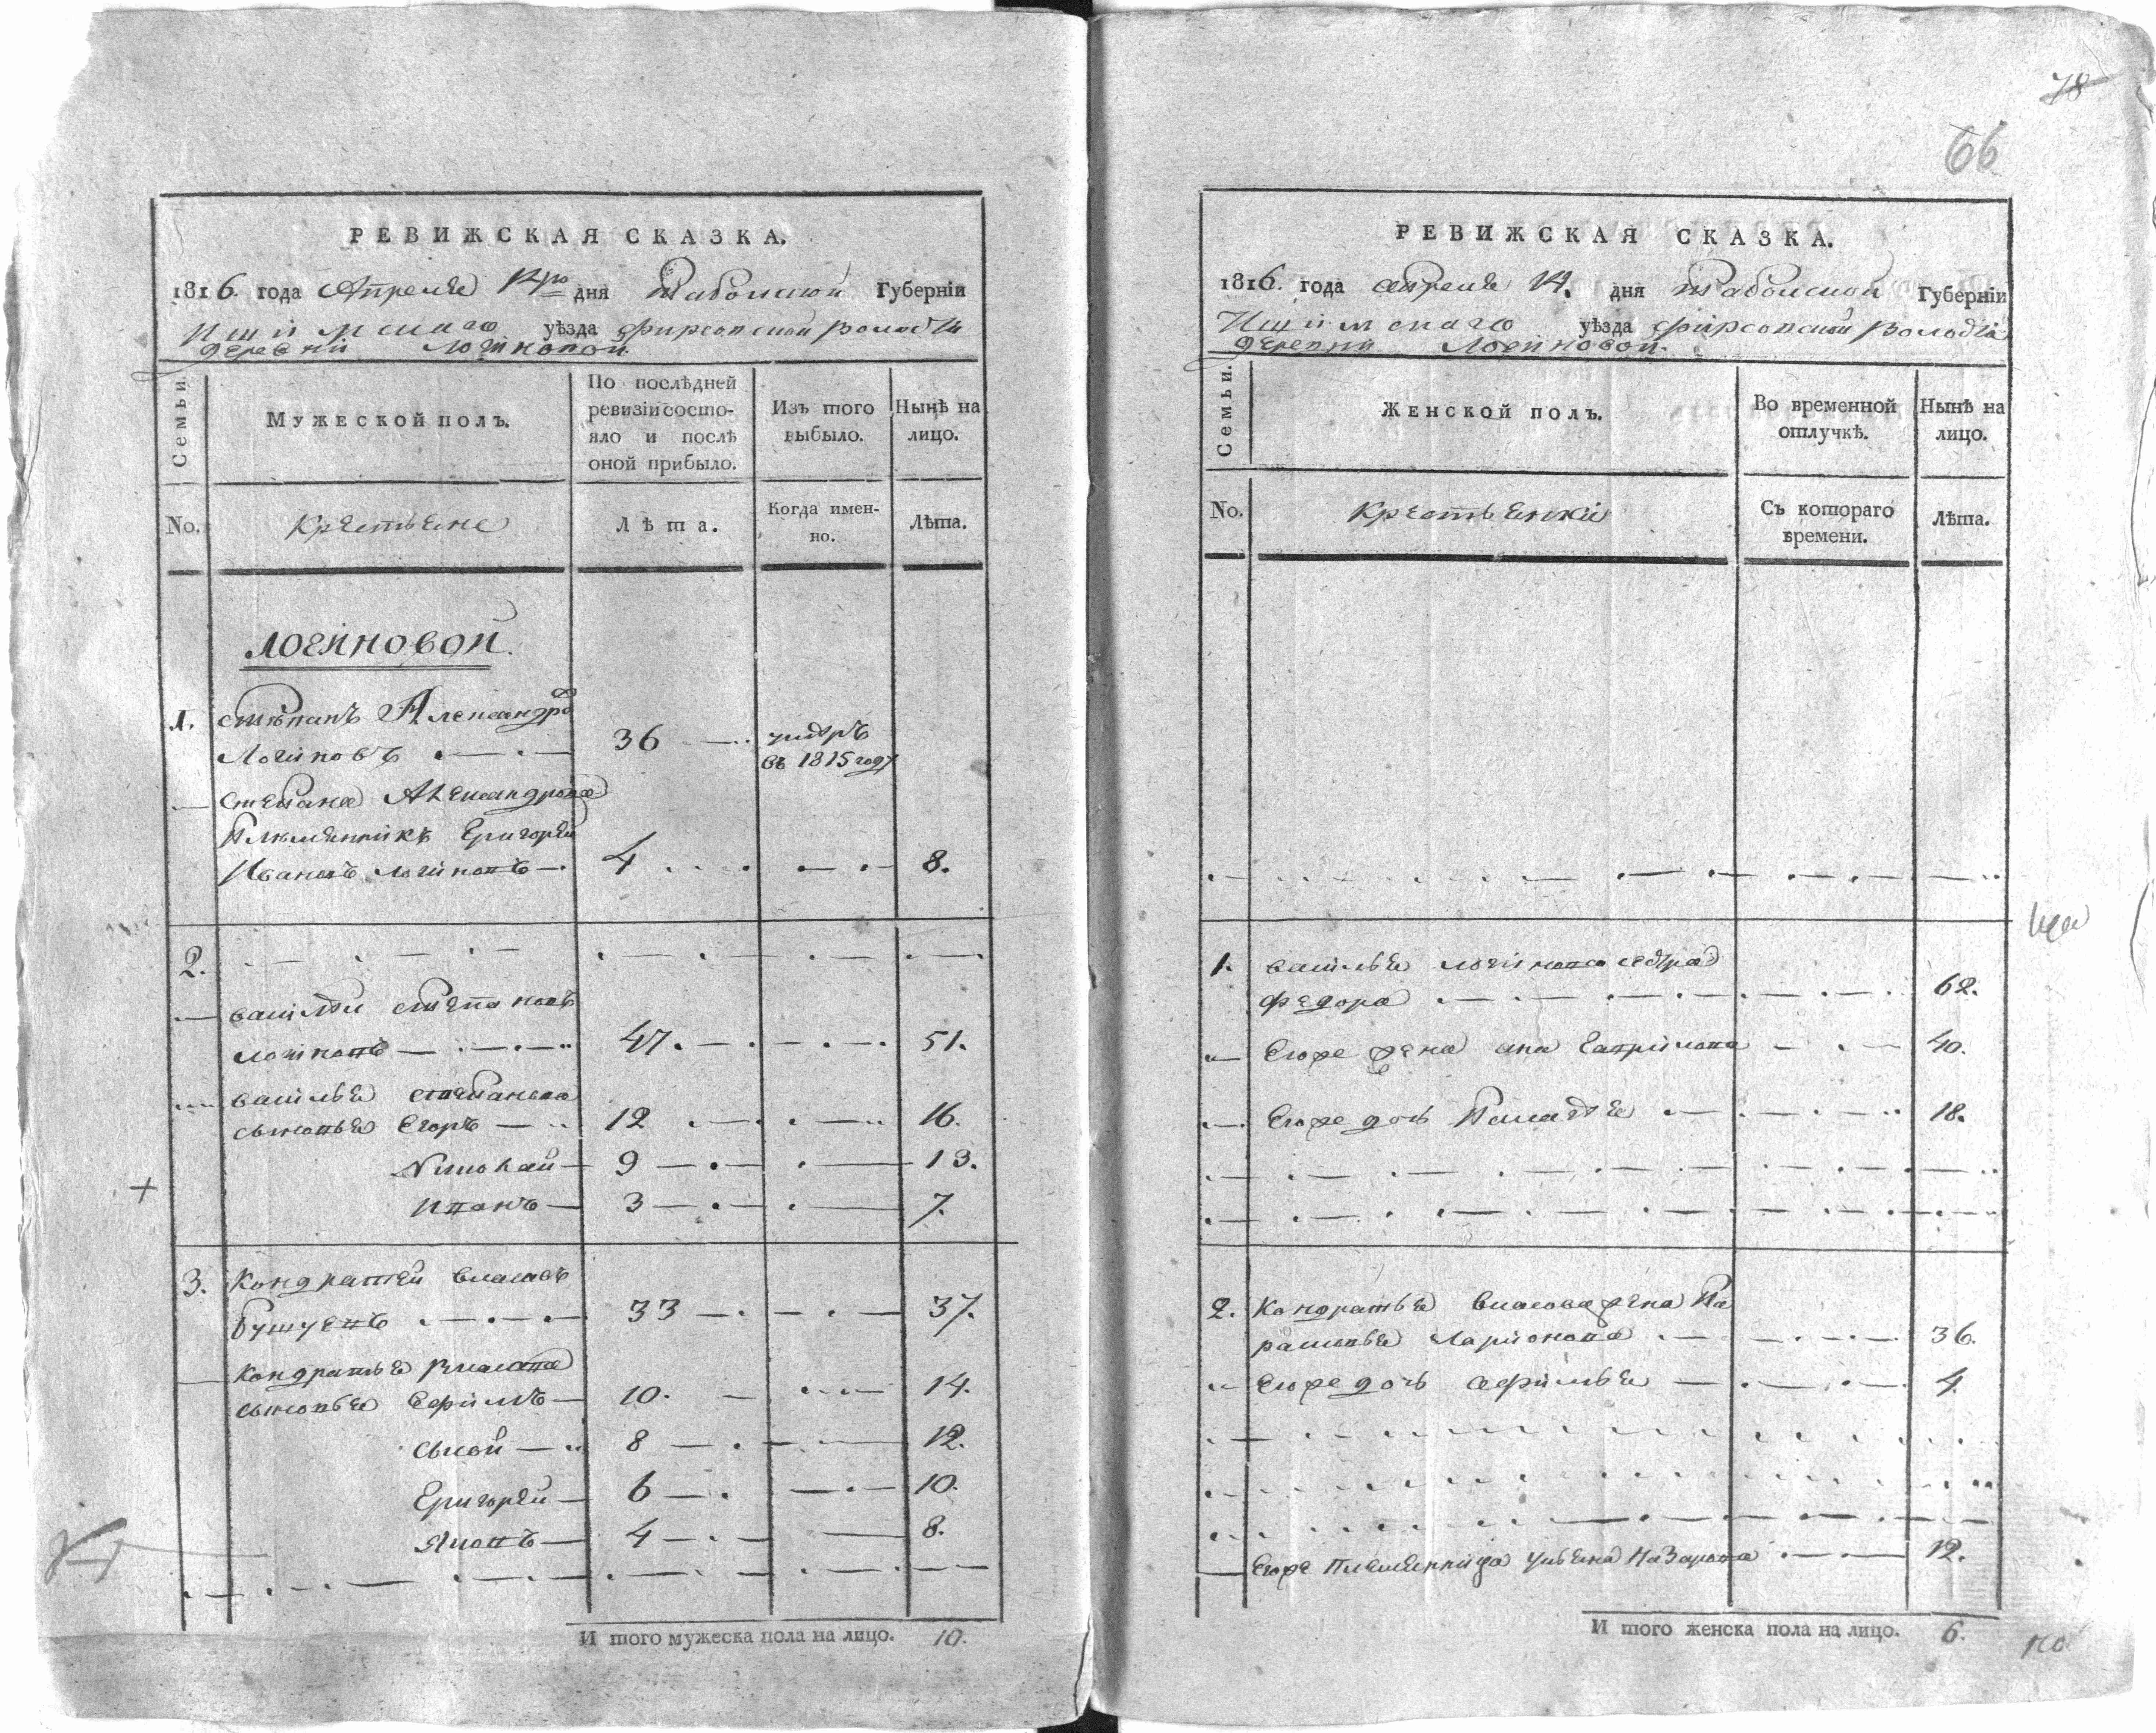 РЕВИЖСКАЯ СКАЗКА.
1816. года Апреля дня Тобольской Губерніи
Ишимскаго уѣзда фирсовской волости
деревни Логиновой.
Семьи.
Мужеской полъ.
По послѣдней ревизіи состояло и послѣ оной прибыло.
Изъ того выбыло.
Нынѣ на лицо.
No.
Крестьяне
Лѣта.
Когда именно.
Лѣта.
Логиновой.
1. степанъ Александро
Логиновъ 36 умеръ
въ 1815 году
степана Александрова
Племянникъ Григорей
Ивановъ логиновъ 4 8.
2.
василей степановъ
логиновъ 47. 51.
василья степанова
сыновья Егоръ 12 16.
Николай 9 13.
иванъ 3 7.
3. Кондратей власовъ
Бушуевъ 33 37.
кондратья власова
сыновья Ефимъ 10. 14.
сысой 8 12.
Григорей 6 10.
4 8.
И того мужеска пола на лицо. 10.
78
66
РЕВИЖСКАЯ СКАЗКА.
1816. года апреля 14. дня Тобольской Губерніи
Ишимскаго уѣзда фирсовской волости
деревни Логиновой.
Семьи.
Женской полъ.
Во временной отлучкѣ.
Нынѣ на лицо.
No.
Крестьянки
Съ котораго времени.
Лѣта.
1. василья логинова сестра
федора 62.
Егоже жена гаврилова 40.
Егоже дочь 18.
2. Кондратья власова жена Па
расковья Ларионова 36.
Егоже дочь афимья 4.
Егоже племянница ульяна Назарова 12.
И того женска пола на лицо. 6.